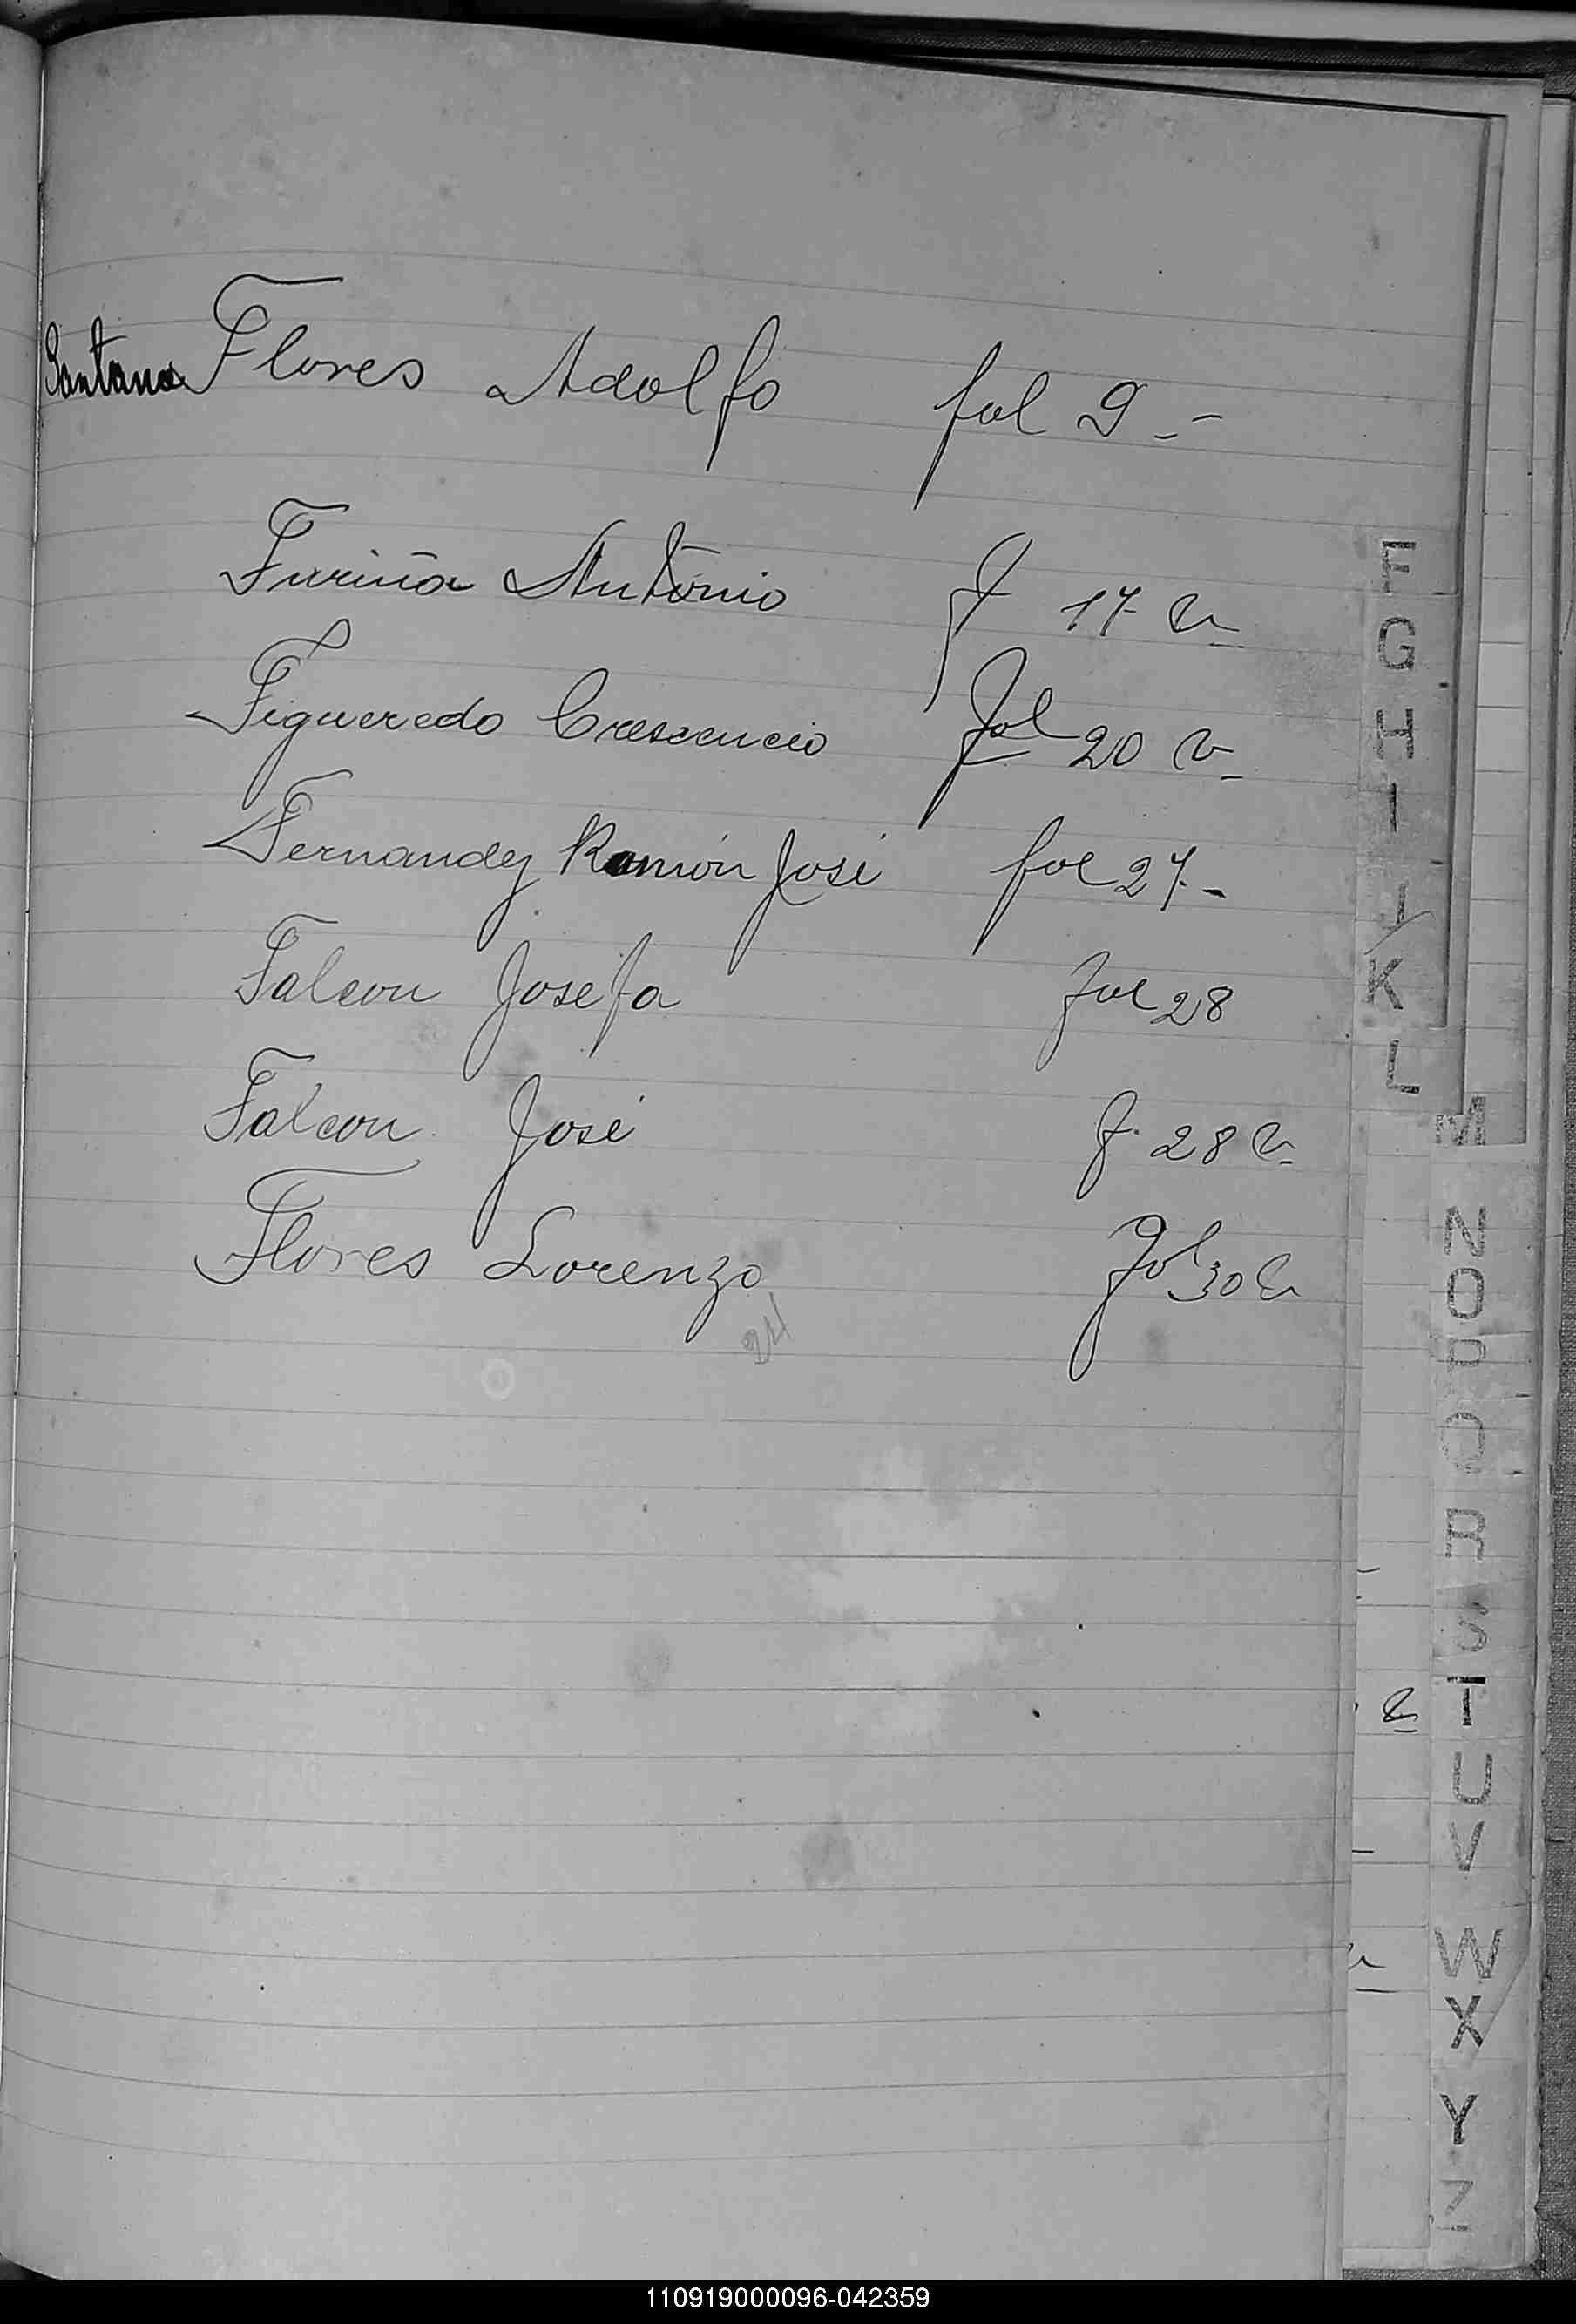 Santana Flores Adolfo fol 9 --
Furiña Antonio f 17 v
Figueredo Crescencio fol 20 v
Fernandez Ramón José fol 27 -
Falcon Josefa fol 28
Falcon José f. 28 v
Flores Lorenzo fol 30 v
F
G
H
I
J
K
L
M
N
O
P
Q
R
S
T
U
V
W
X
Y
Z
110919000096-042359